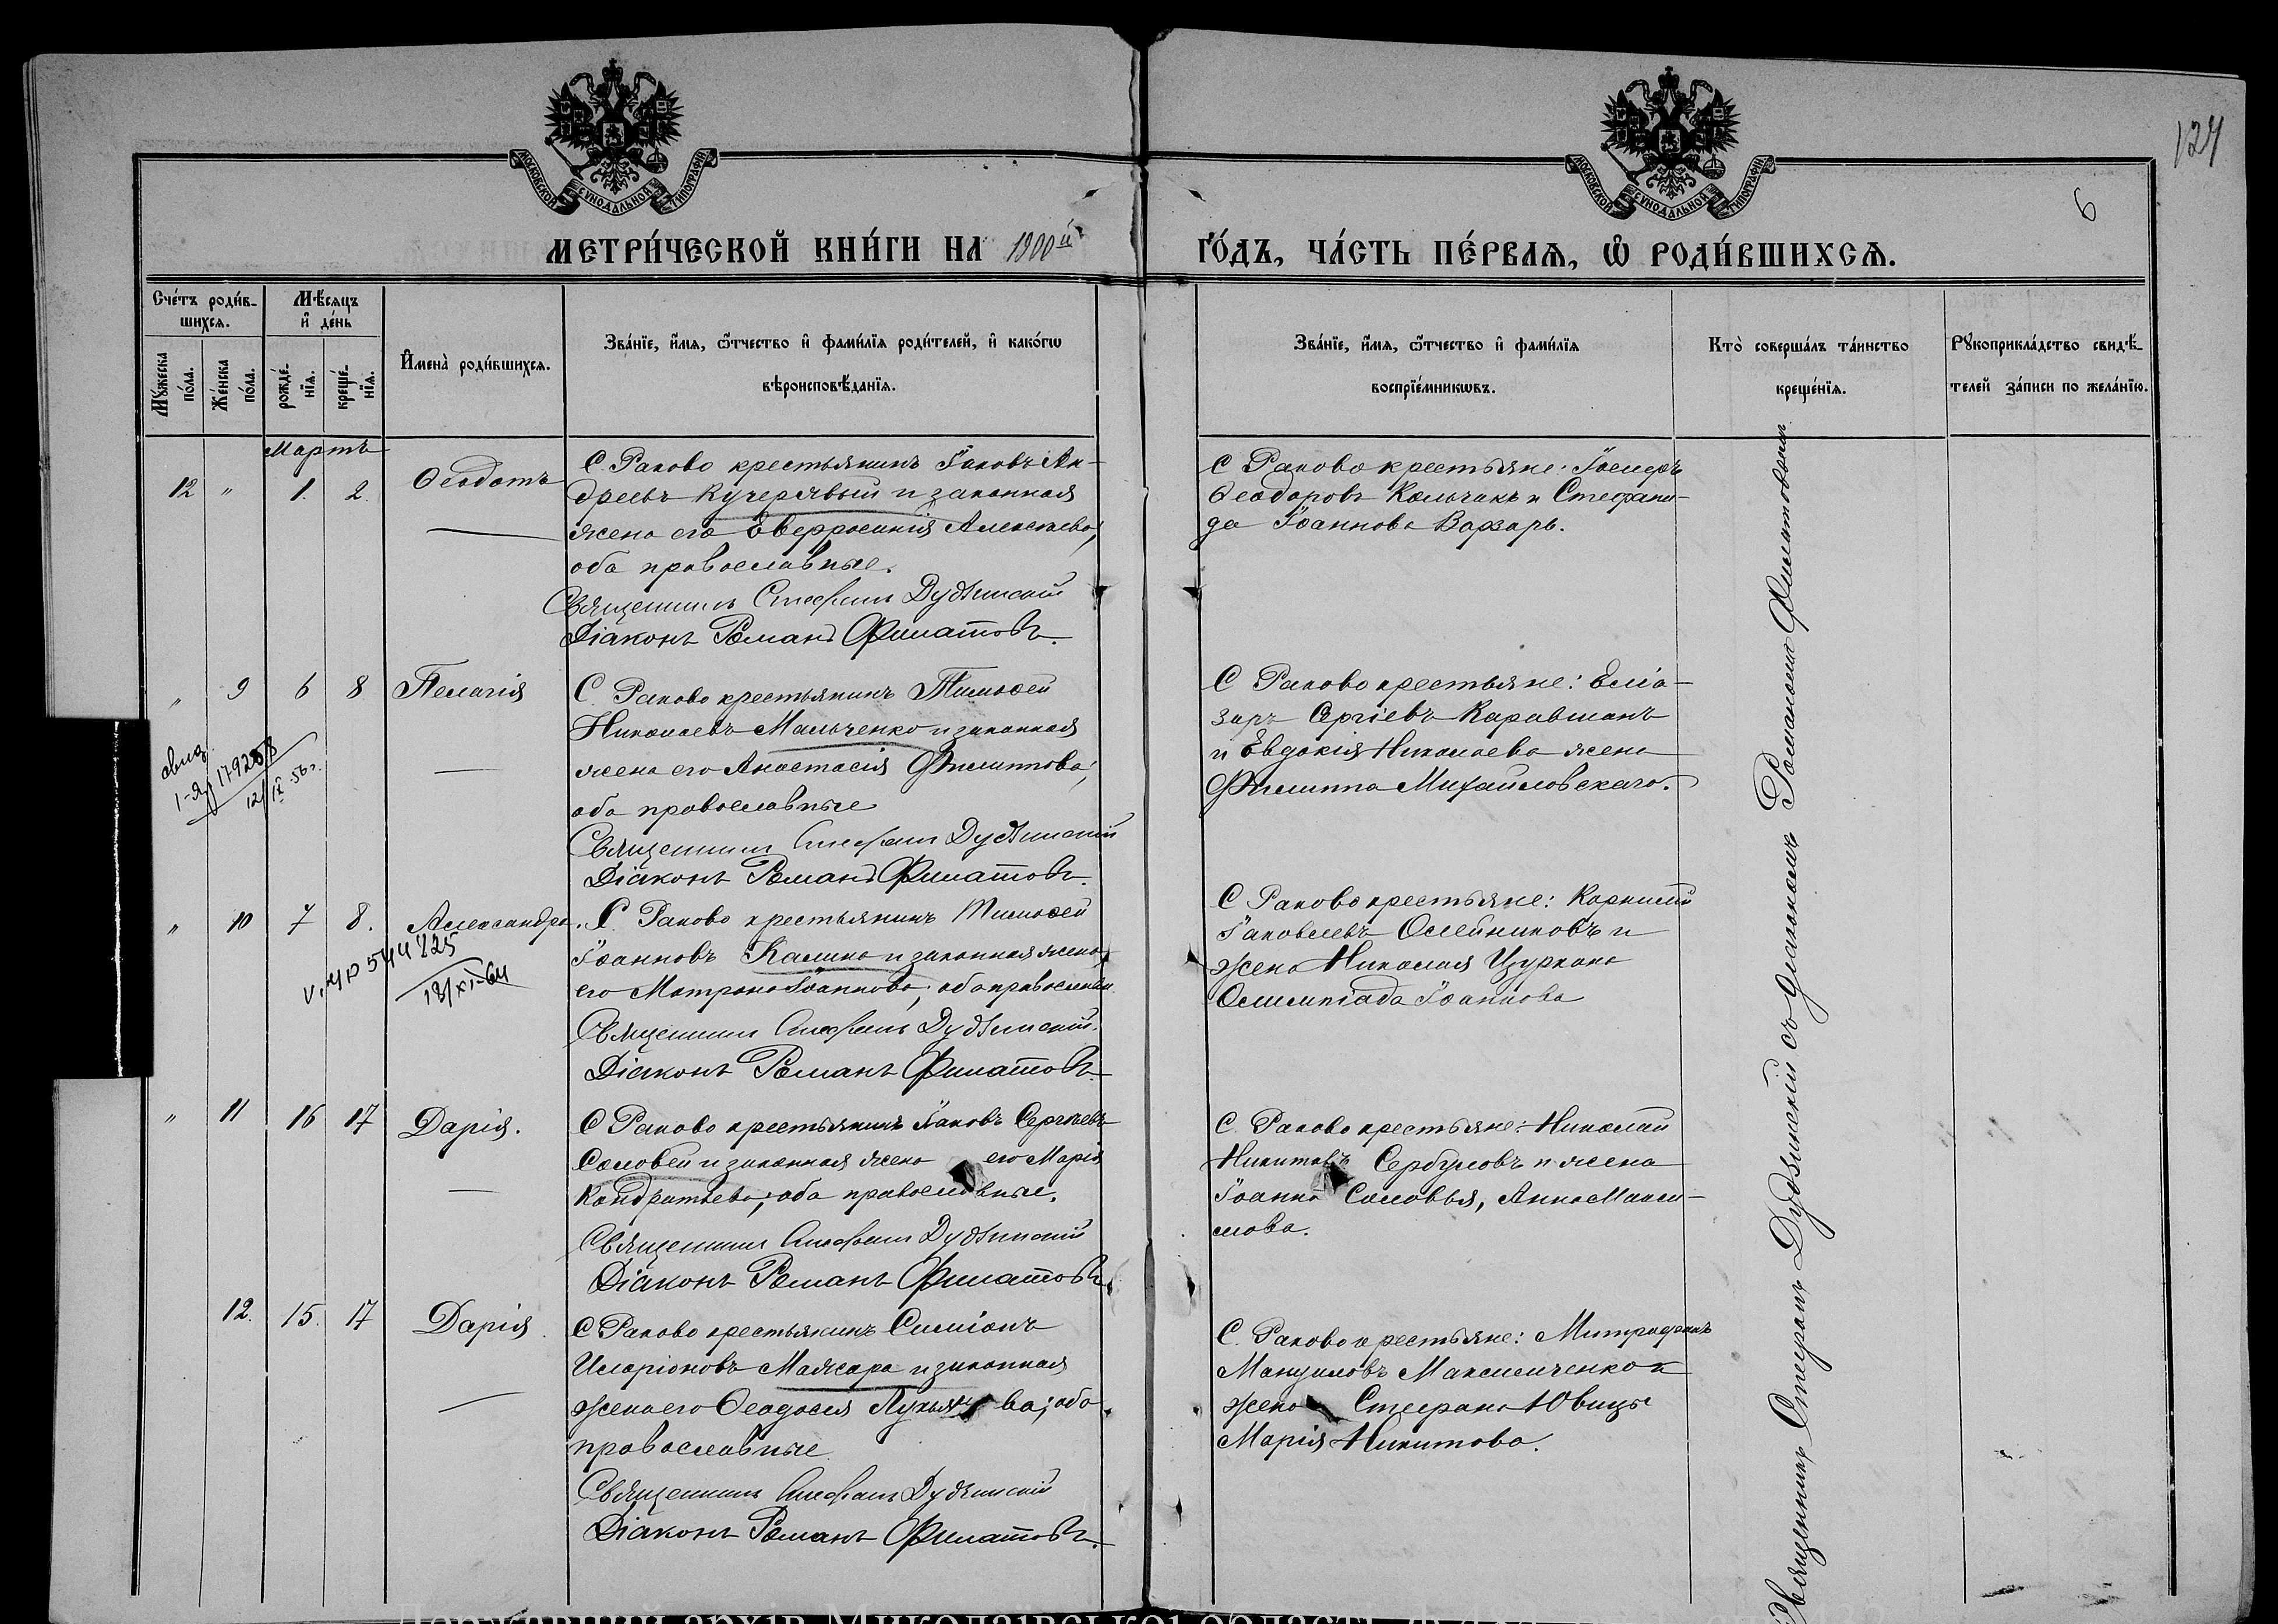 124
6
МОСКОВСКОЙ СУНОДАЛЬНОЙ ТИПОГРАФІИ
МОСКОВСКОЙ СУНОДАЛЬНОЙ ТИПОГРАФІИ
МЕТРИ́ЧЕСКОЙ КНИ́ГИ НА 1900й
ГО́ДЪ, ЧА́СТЬ ПЕ́РВАѦ, Ѡ РОДИ́ВШИХСѦ.
Сче́тъ роди́в-
шихсѧ.
Мѣ́сѧцъ
и҆ де́нь
Мꙋ́жеска
по́ла.
Же́нска
по́ла.
рожде́-
нїѧ.
креще́-
нїѧ.
И҆мена̀ роди́вшихсѧ.
Зва́нїе, и҆́мѧ, ѻ҆́тчество и҆ фами́лїѧ роди́телей, и҆ како́гѡ
вѣроисповѣ́данїѧ.
Зва́нїе, и҆́мѧ, ѻ҆́тчество и҆ фами́лїѧ
воспрїе́мникѡвъ.
Кто̀ соверша́лъ та́инство
креще́нїѧ.
Рꙋкоприкла́дство свидѣ́-
телей за́писи по жела́нїю.
Мартъ
12 " 1. 2. Ѳеодотъ
С. Раково крестьянинъ Іаковъ Ан-
дреевъ Кучерявый и законная
жена его Евфросинія Алексѣева,
оба православные.
Священникъ Стефанъ Дудзинскій
Діаконъ Романъ Филатовъ.
С Раково крестьяне: Іосифъ
Ѳеодоровъ Кольчакъ и Стефани-
да Іоаннова Варзарь.
" 9 6 8 Пелагія
С. Раково крестьянинъ Тимоѳей
Николаевъ Мальченко и законная
жена его Анастасія Филиппова,
оба православные
Священникъ Стефанъ Дудзинскій
Діаконъ Романъ Филатовъ.
С Раково крестьяне: Еліа-
заръ Сергіевъ Караванъ
и Евдокія Николаева жена
Филиппа Михайловскаго.
" 10 7 8. Александра.
С. Раково крестьянинъ Тимоѳей
Іоанновъ Калина и законная жена
его Матрона Іоаннова, оба православные
Священникъ Стефанъ Дудзинскій.
Діаконъ Романъ Филатовъ.
18/XI-64
С Раково крестьяне: Корнилій
Іаковлевъ Олейниковъ и
жена Николая Цуркана
Олимпіада Іоаннова
" 11 16 17 Дарія.
С Раково крестьянинъ Іаковъ Сергѣевъ
Соловей и законная жена его Марія
Кондратьева, оба православные.
Священникъ Стефанъ Дудзинскій
Діаконъ Романъ Филатовъ.
С. Раково крестьяне: Николай
Никитовъ Сербуловъ и жена
Іоанна Соловья, Анна Макси-
мова.
12. 15. 17 Дарія.
С Раково крестьянинъ Симіонъ
Иларіоновъ Мажара и законная
жена его Ѳеодосія Лукьянова; оба
православные
Священникъ Стефанъ Дудзинскій
Діаконъ Романъ Филатовъ.
С. Раково крестьяне: Митрофанъ
Мануиловъ Максимченко и
жена Стефана Ювицы
Марія Никитова.
Священникъ Стефанъ Дудзинскій съ діакономъ Романомъ Филатовымъ